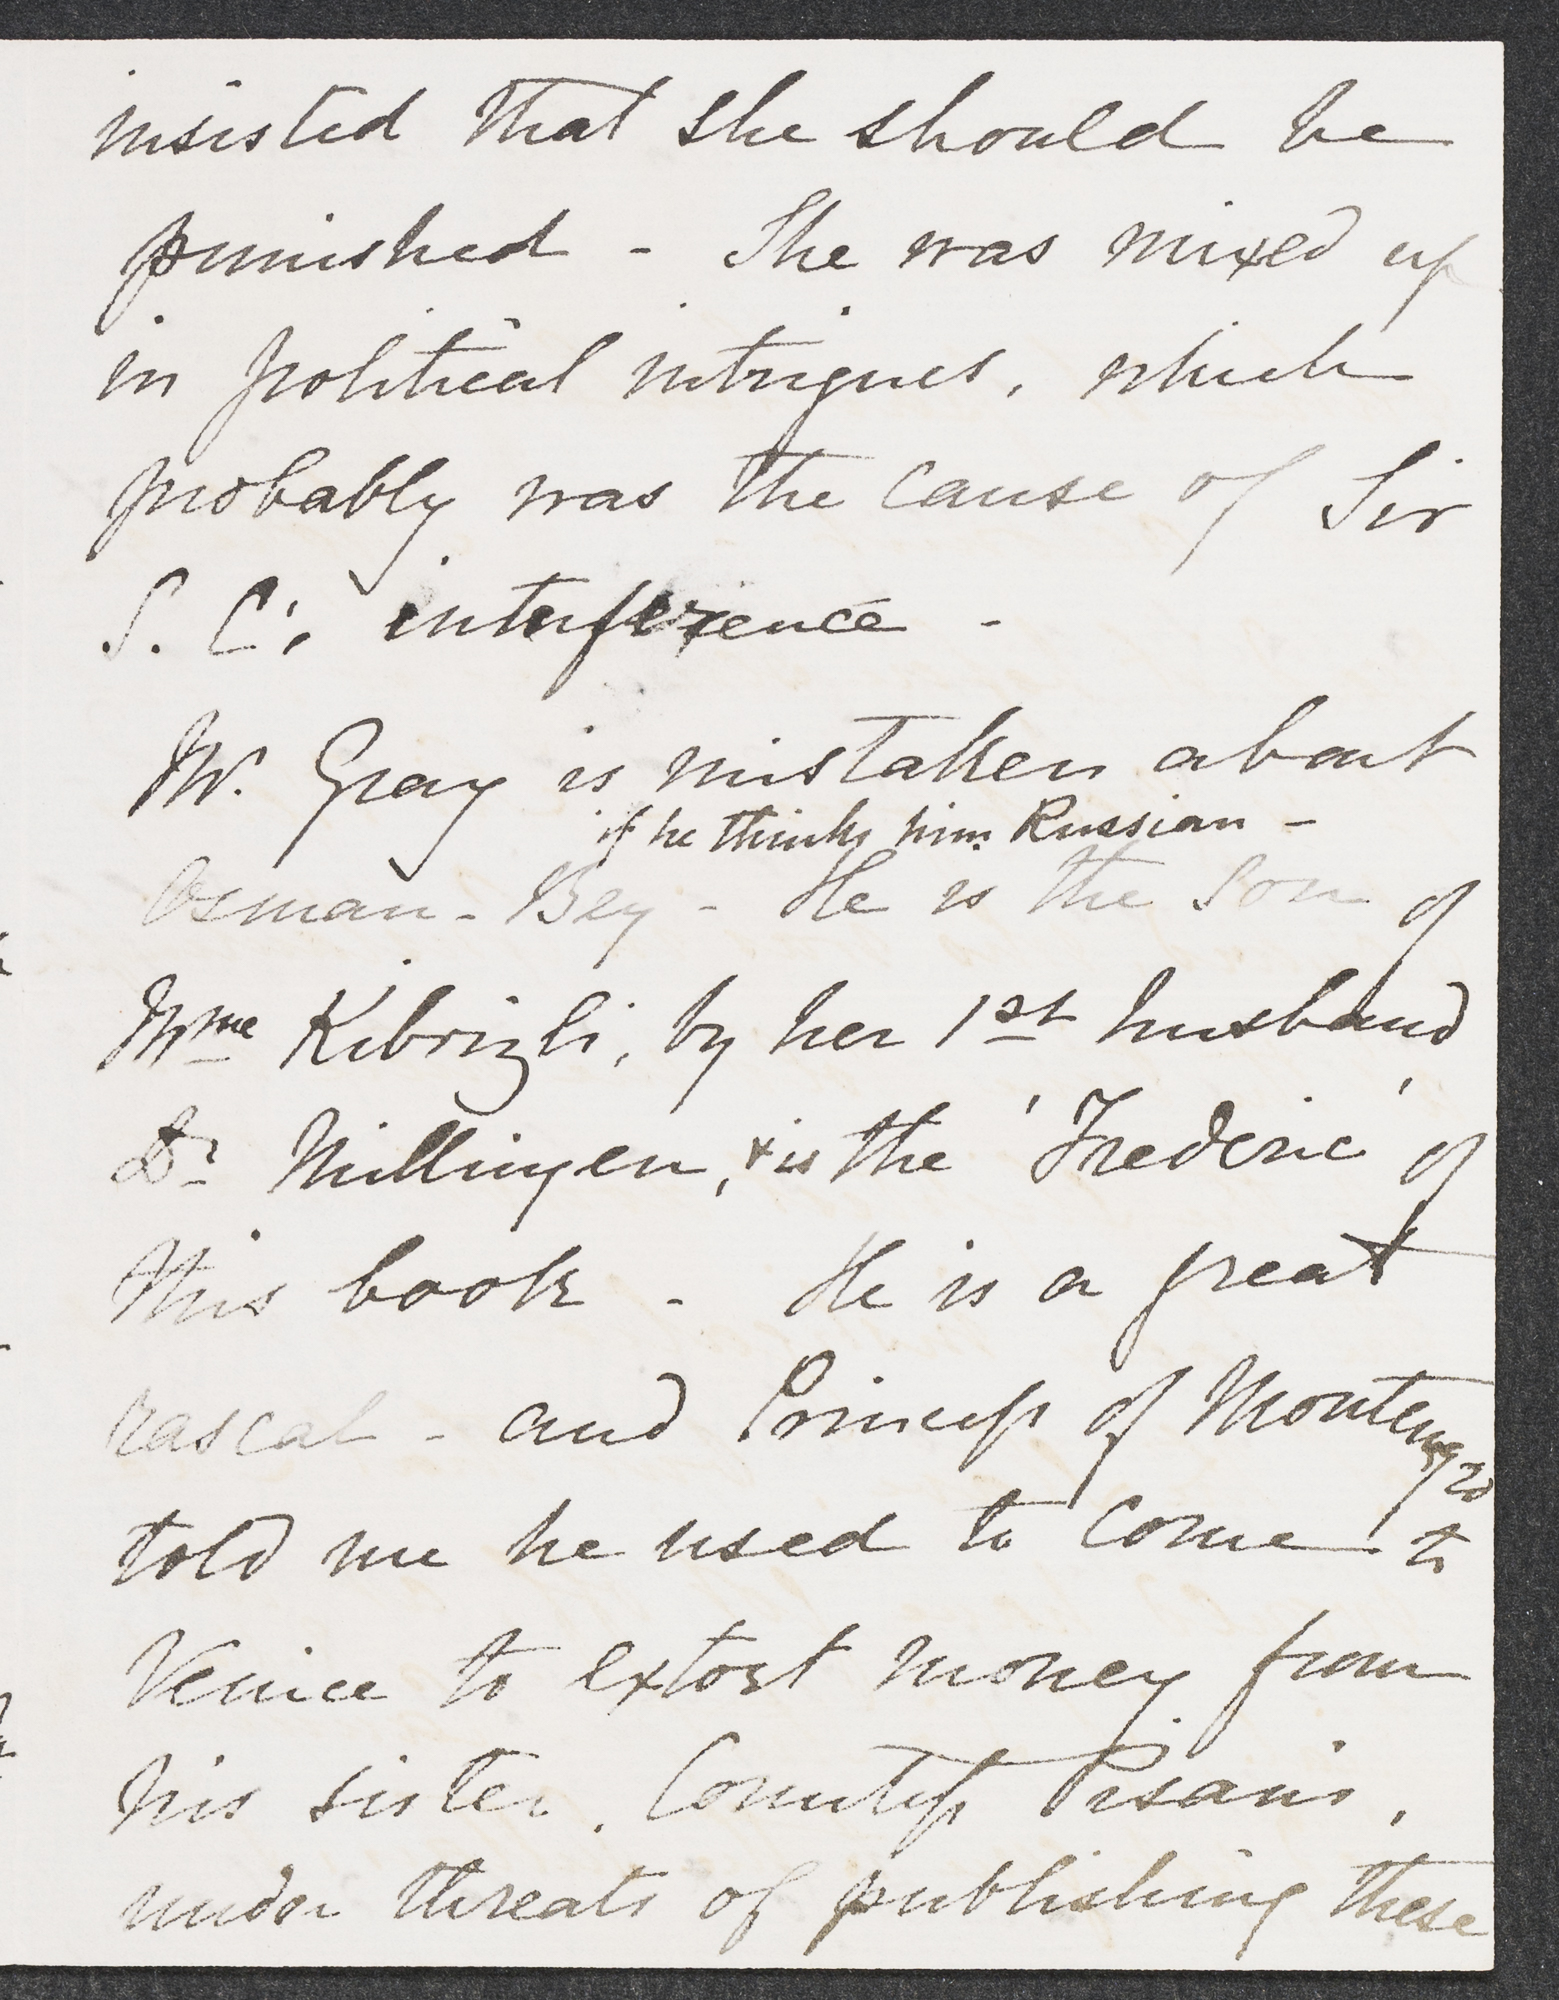 insisted that she should be
punished - She was mixed up
in political intrigues, which
probably was the cause of Sir
S. C's interference -
Mr. Gray is mistaken about
if he thinks him Russian -
Osman-Bey - He is the son of
Mme Kibrizli, by her 1st husband
Dr Millingen, & is the 'Frederic' of
this book - He is a great
rascal - and Princess of Montenegro
told me he used to come to
Venice to extort money from
his sister, Countess Pisani,
under threats of publishing these